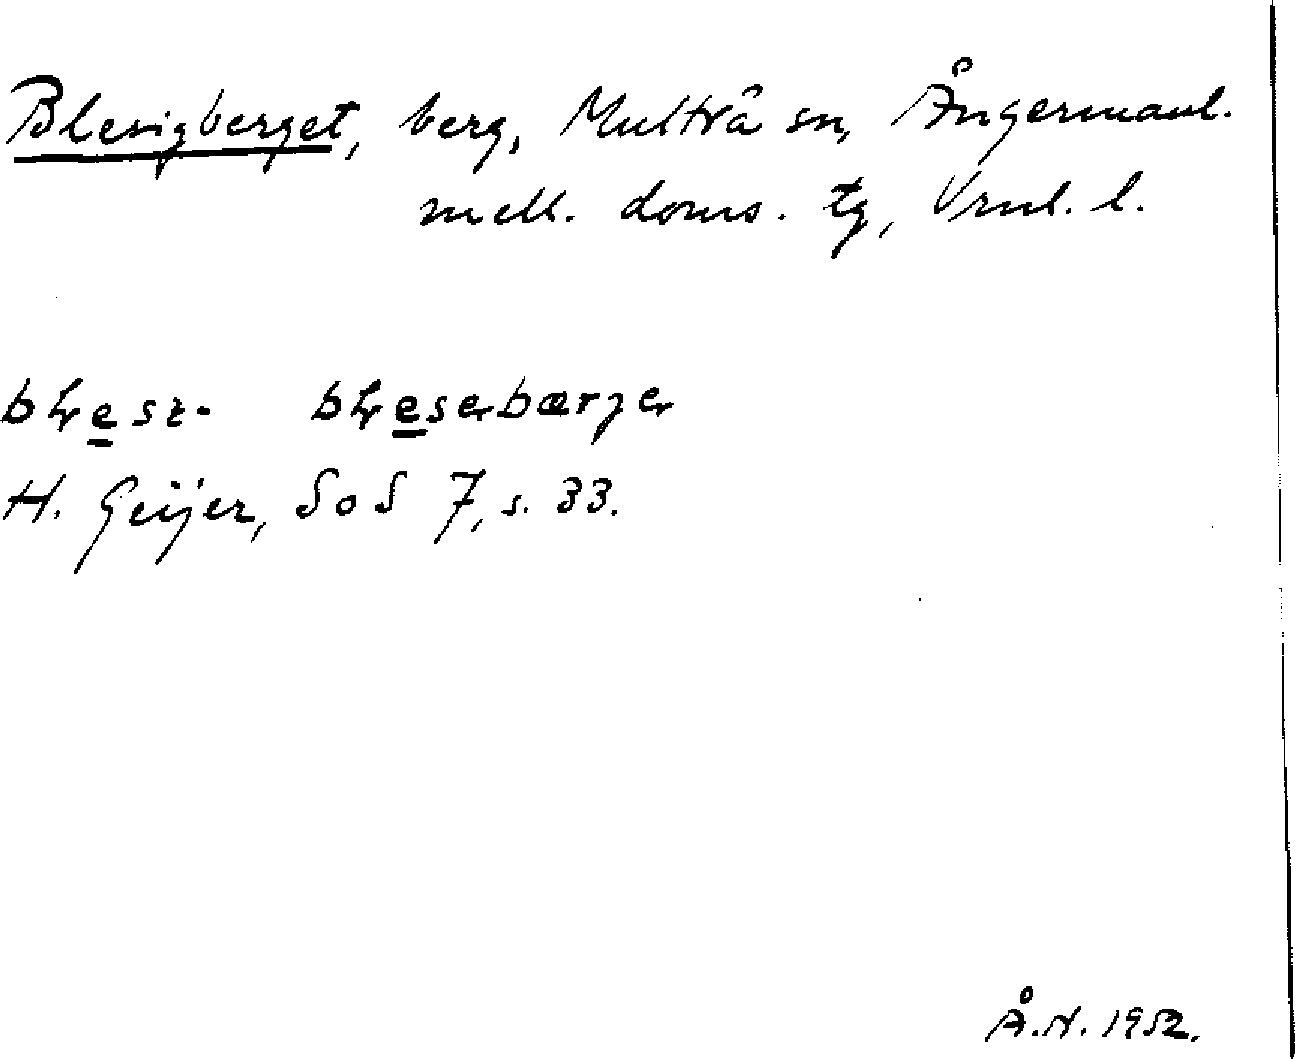 Blesigberget, berg, Multrå sn, Ångermanl.
mell. doms. tg, Vrnl. l.
H. Geijer, SoS 7, s. 33.
Å.N. 1952.